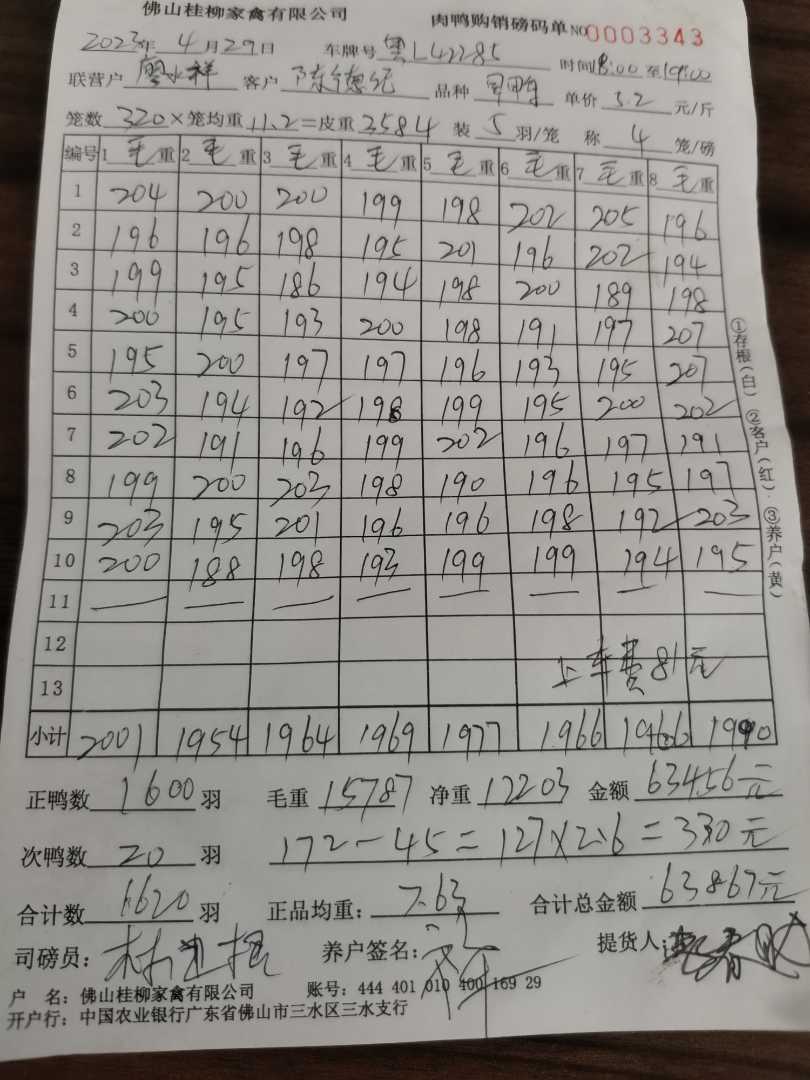 佛山桂柳家禽有限公司 肉鸭购销磅码单 NO 0003343
2023年 4月29日 车牌号 粤L42285 时间18:00至19:00
联营户 廖水祥 客户 陈德纪 品种 单价 5.2 元/斤
笼数 320 ×笼均重 11.2 =皮重 3584 装 5 羽/笼 称 4 笼/磅
编号 1 毛重 2 毛重 3 毛重 4 毛重 5 毛重 6 毛重 7 毛重 8 毛重
1 204 200 200 199 198 202 205 196
2 196 196 198 195 201 196 202 194
3 199 195 186 194 198 200 189 198
4 200 195 193 200 198 191 197 207
5 195 200 197 197 196 193 195 207
6 203 194 192 198 199 195 200 202
7 202 191 196 199 202 196 197 191
8 199 200 203 198 190 196 195 197
9 203 195 201 196 196 198 192 203
10 200 188 198 193 199 199 194 195
11 — — — — — — — —
12
上车费81元
13
小计 2001 1954 1964 1969 1977 1966 1966 1990
正鸭数 1600 羽 毛重 15787 净重 12203 金额 63456元
次鸭数 20 羽 172-45=127×2.6=330元
合计数 1620 羽 正品均重: 7.63 合计总金额 63867元
司磅员: 养户签名: 提货人:
户 名: 佛山桂柳家禽有限公司 账号: 444 401 010 400 169 29
开户行: 中国农业银行广东省佛山市三水区三水支行
①存根(白) ②客户(红) ③养户(黄)